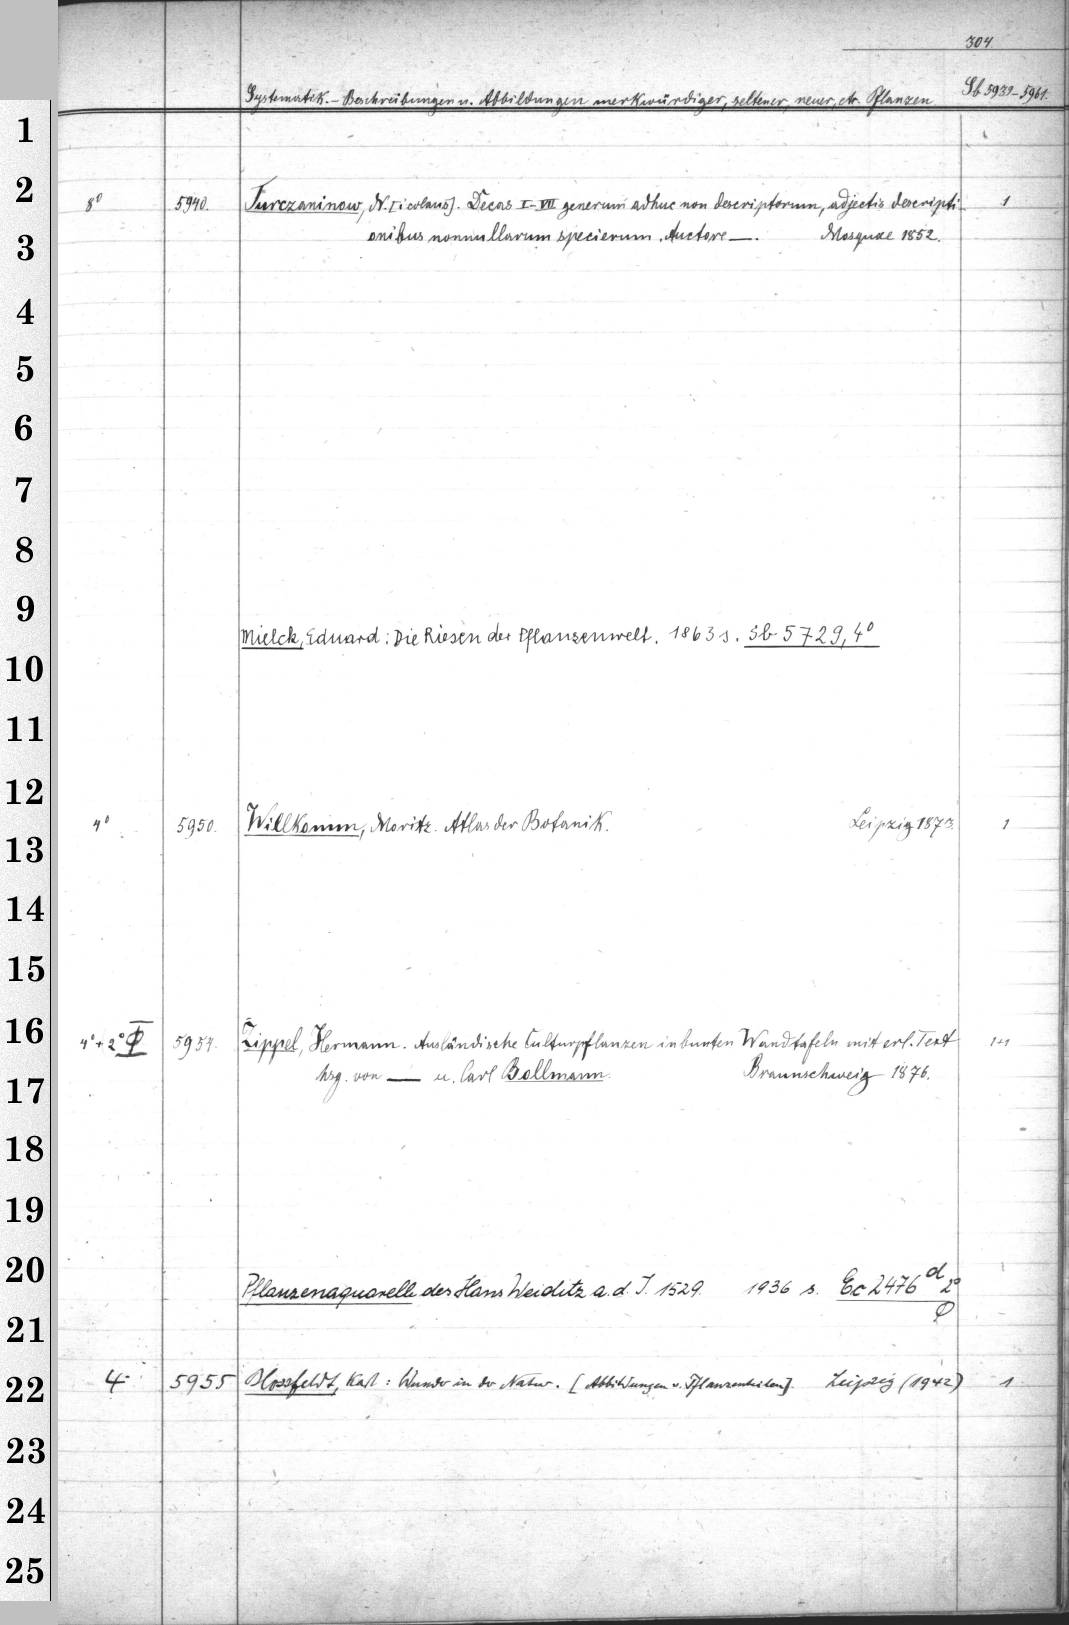 304
Systematik. – Beschreibungen u. Abbildungen merkwürdiger, seltener, neuer, etc. Pflanzen Sb 5931–5961.
1
2
8° 5940. Turczaninow, N. [icolaus]. Decas I–VII generum adhuc non descriptorum, adjectis descripti- 1
3
onibus nonnullarum specierum. Auctore —. Mosquae 1852.
4
5
6
7
8
9
Mielck, Eduard: Die Riesen der Pflanzenwelt. 1863 s. Sb 5729, 4°
10
11
12
4° 5950. Willkomm, Moritz. Atlas der Botanik. Leipzig 1873. 1
13
14
15
16
4° + 2° Φ 5954. Zippel, Hermann. Ausländische Culturpflanzen in bunten Wandtafeln mit erl. Text 1+1
17
hsg. von — u. Carl Bollmann. Braunschweig 1876.
18
19
20
Pflanzenaquarelle des Hans Weiditz a. d. J. 1529. 1936 s. Ec 2476 d 2°
Φ
21
22
4° 5955 Blossfeldt, Karl: Wunder in der Natur. [Abbildungen v. Pflanzenteilen]. Leipzig (1942) 1
23
24
25